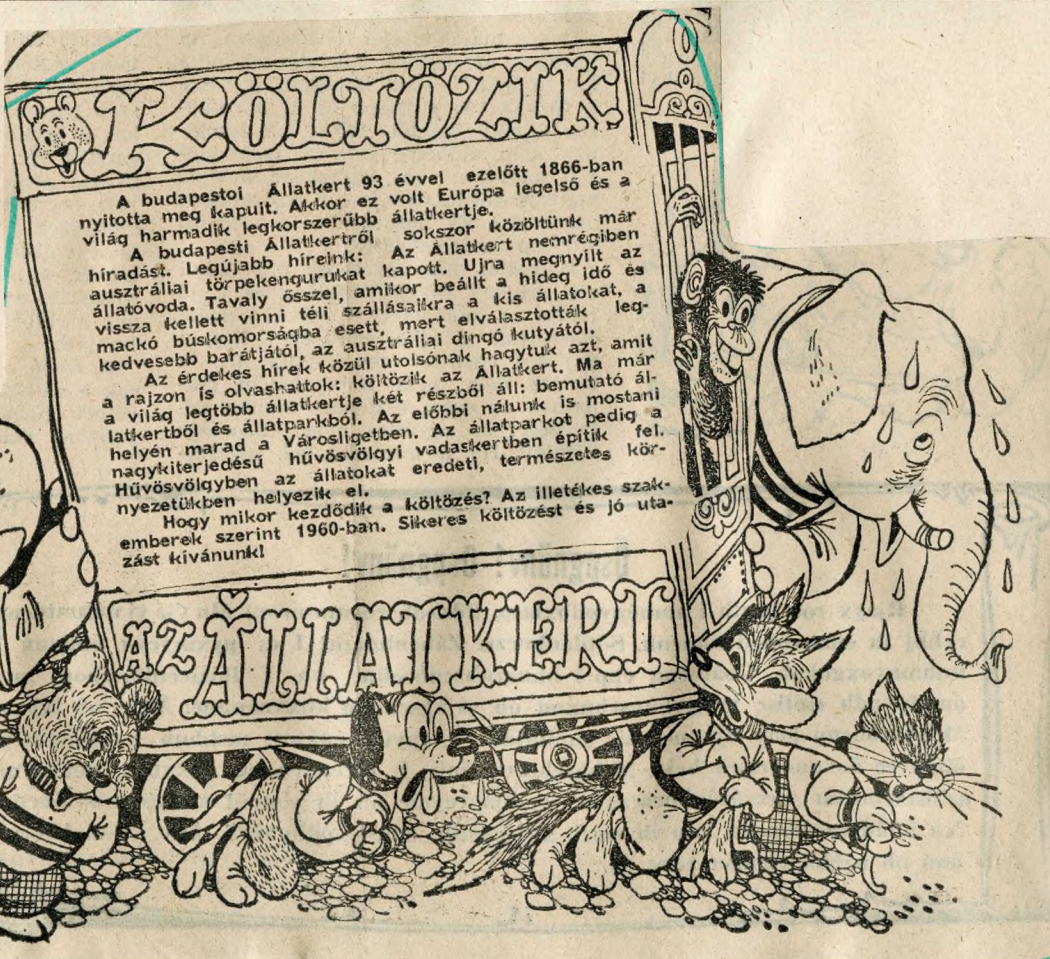 KÖLTÖZIK
A budapestoi Állatkert 93 évvel ezelőtt 1866-ban
nyitotta meg kapuit. Akkor ez volt Európa legelső és a
világ harmadik legkorszerűbb állatkertje.
A budapesti Állatkertről sokszor közöltünk már
híradást. Legújabb híreink: Az Állatkert nemrégiben
ausztráliai törpekengurukat kapott. Ujra megnyilt az
állatóvoda. Tavaly ősszel, amikor beállt a hideg idő és
vissza kellett vinni téli szállásaikra a kis állatokat, a
mackó búskomorságba esett, mert elválasztották leg-
kedvesebb barátjától, az ausztráliai dingó kutyától.
Az érdekes hírek közül utolsónak hagytuk azt, amit
a rajzon is olvashattok: költözik az Állatkert. Ma már
a világ legtöbb állatkertje két részből áll: bemutató ál-
latkertből és állatparkból. Az előbbi nálunk is mostani
helyén marad a Városligetben. Az állatparkot pedig a
nagykiterjedésű hűvösvölgyi vadaskertben építik fel.
Hűvösvölgyben az állatokat eredeti, természetes kör-
nyezetükben helyezik el.
Hogy mikor kezdődik a költözés? Az illetékes szak-
emberek szerint 1960-ban. Sikeres költözést és jó uta-
zást kívánunk!
AZ ÁLLATKERT